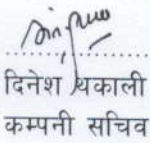 दिनेश थकाली
कम्पनी सचिव